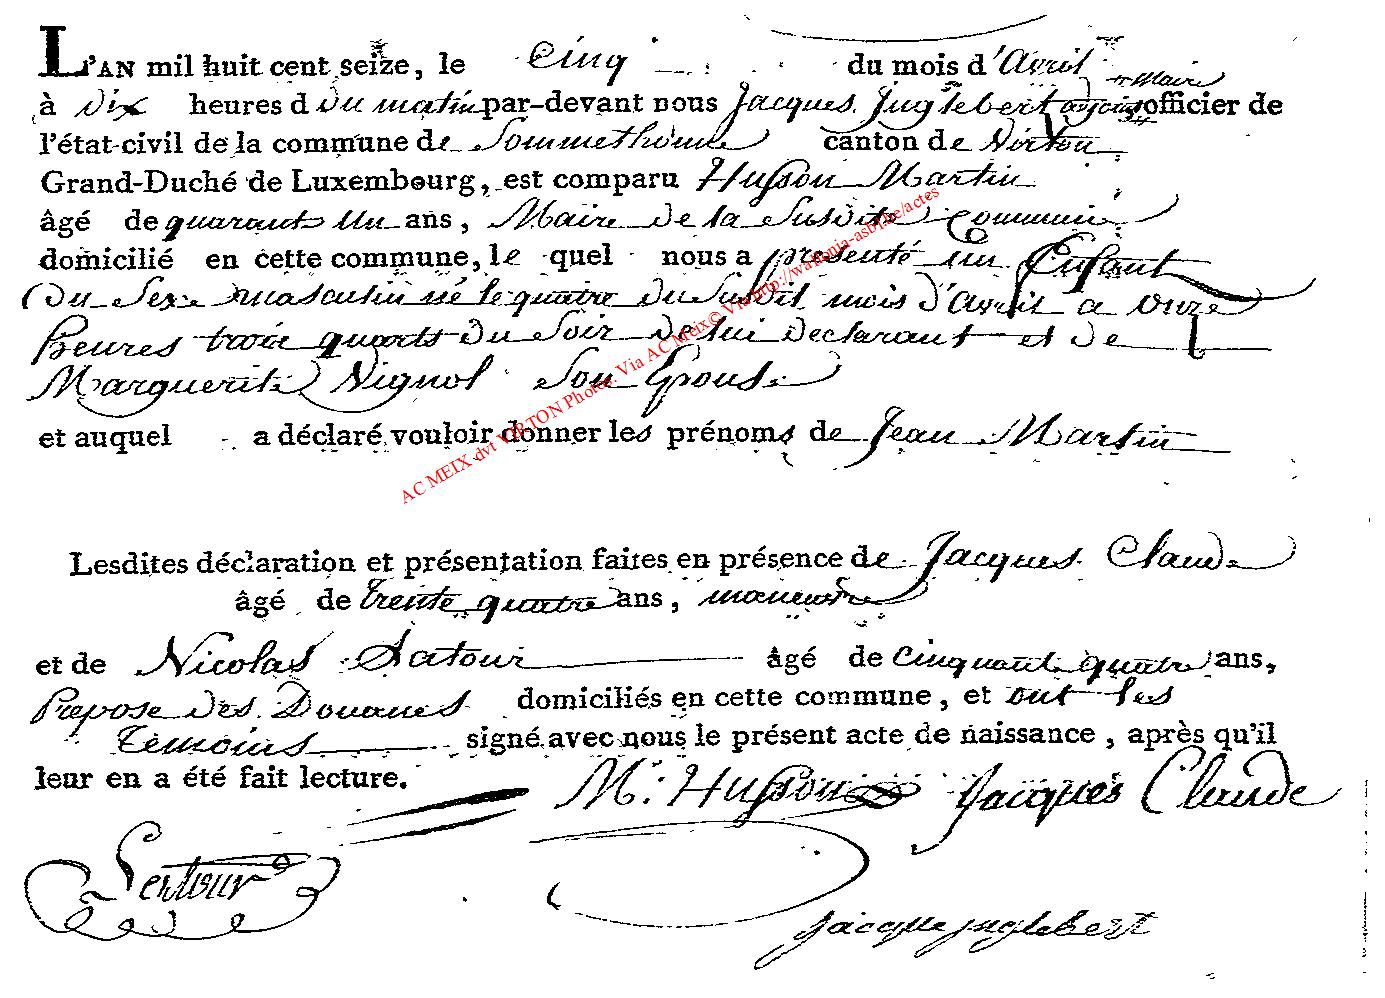 L'AN mil huit cent seize, le Cinq du mois d'Avril
à Dix heures d Du matin par-devant nous Jacques Inglebert adjoint au Maire officier de
l'état-civil de la commune de Sommethonne canton de Virton
Grand-Duché de Luxembourg, est comparu Husson Martin
âgé de quarante un ans, Maire de la Susdite Commune
domicilié en cette commune, le quel nous a présenté un Enfant
Du Sexe masculin né le quatre Du Susdit mois d'avril a onze
heures trois quarts Du Soir de lui Declarant et de
Marguerite Nignol Son Epouse
et auquel a déclaré vouloir donner les prénoms de Jean Martin
Lesdites déclaration et présentation faites en présence de Jacques Claude
âgé de trente quatre ans, manœuvre
et de Nicolas Satour âgé de Cinquante quatre ans,
Préposé Des Douanes domiciliés en cette commune, et ont les
Temoins signé avec nous le présent acte de naissance, après qu'il
leur en a été fait lecture. M. Husson Jacques Claude
Sertour
Jacque Inglebert
AC MEIX dvt VIRTON Photos. Via AC Meix© Via http://wallonia-asbl.be/actes